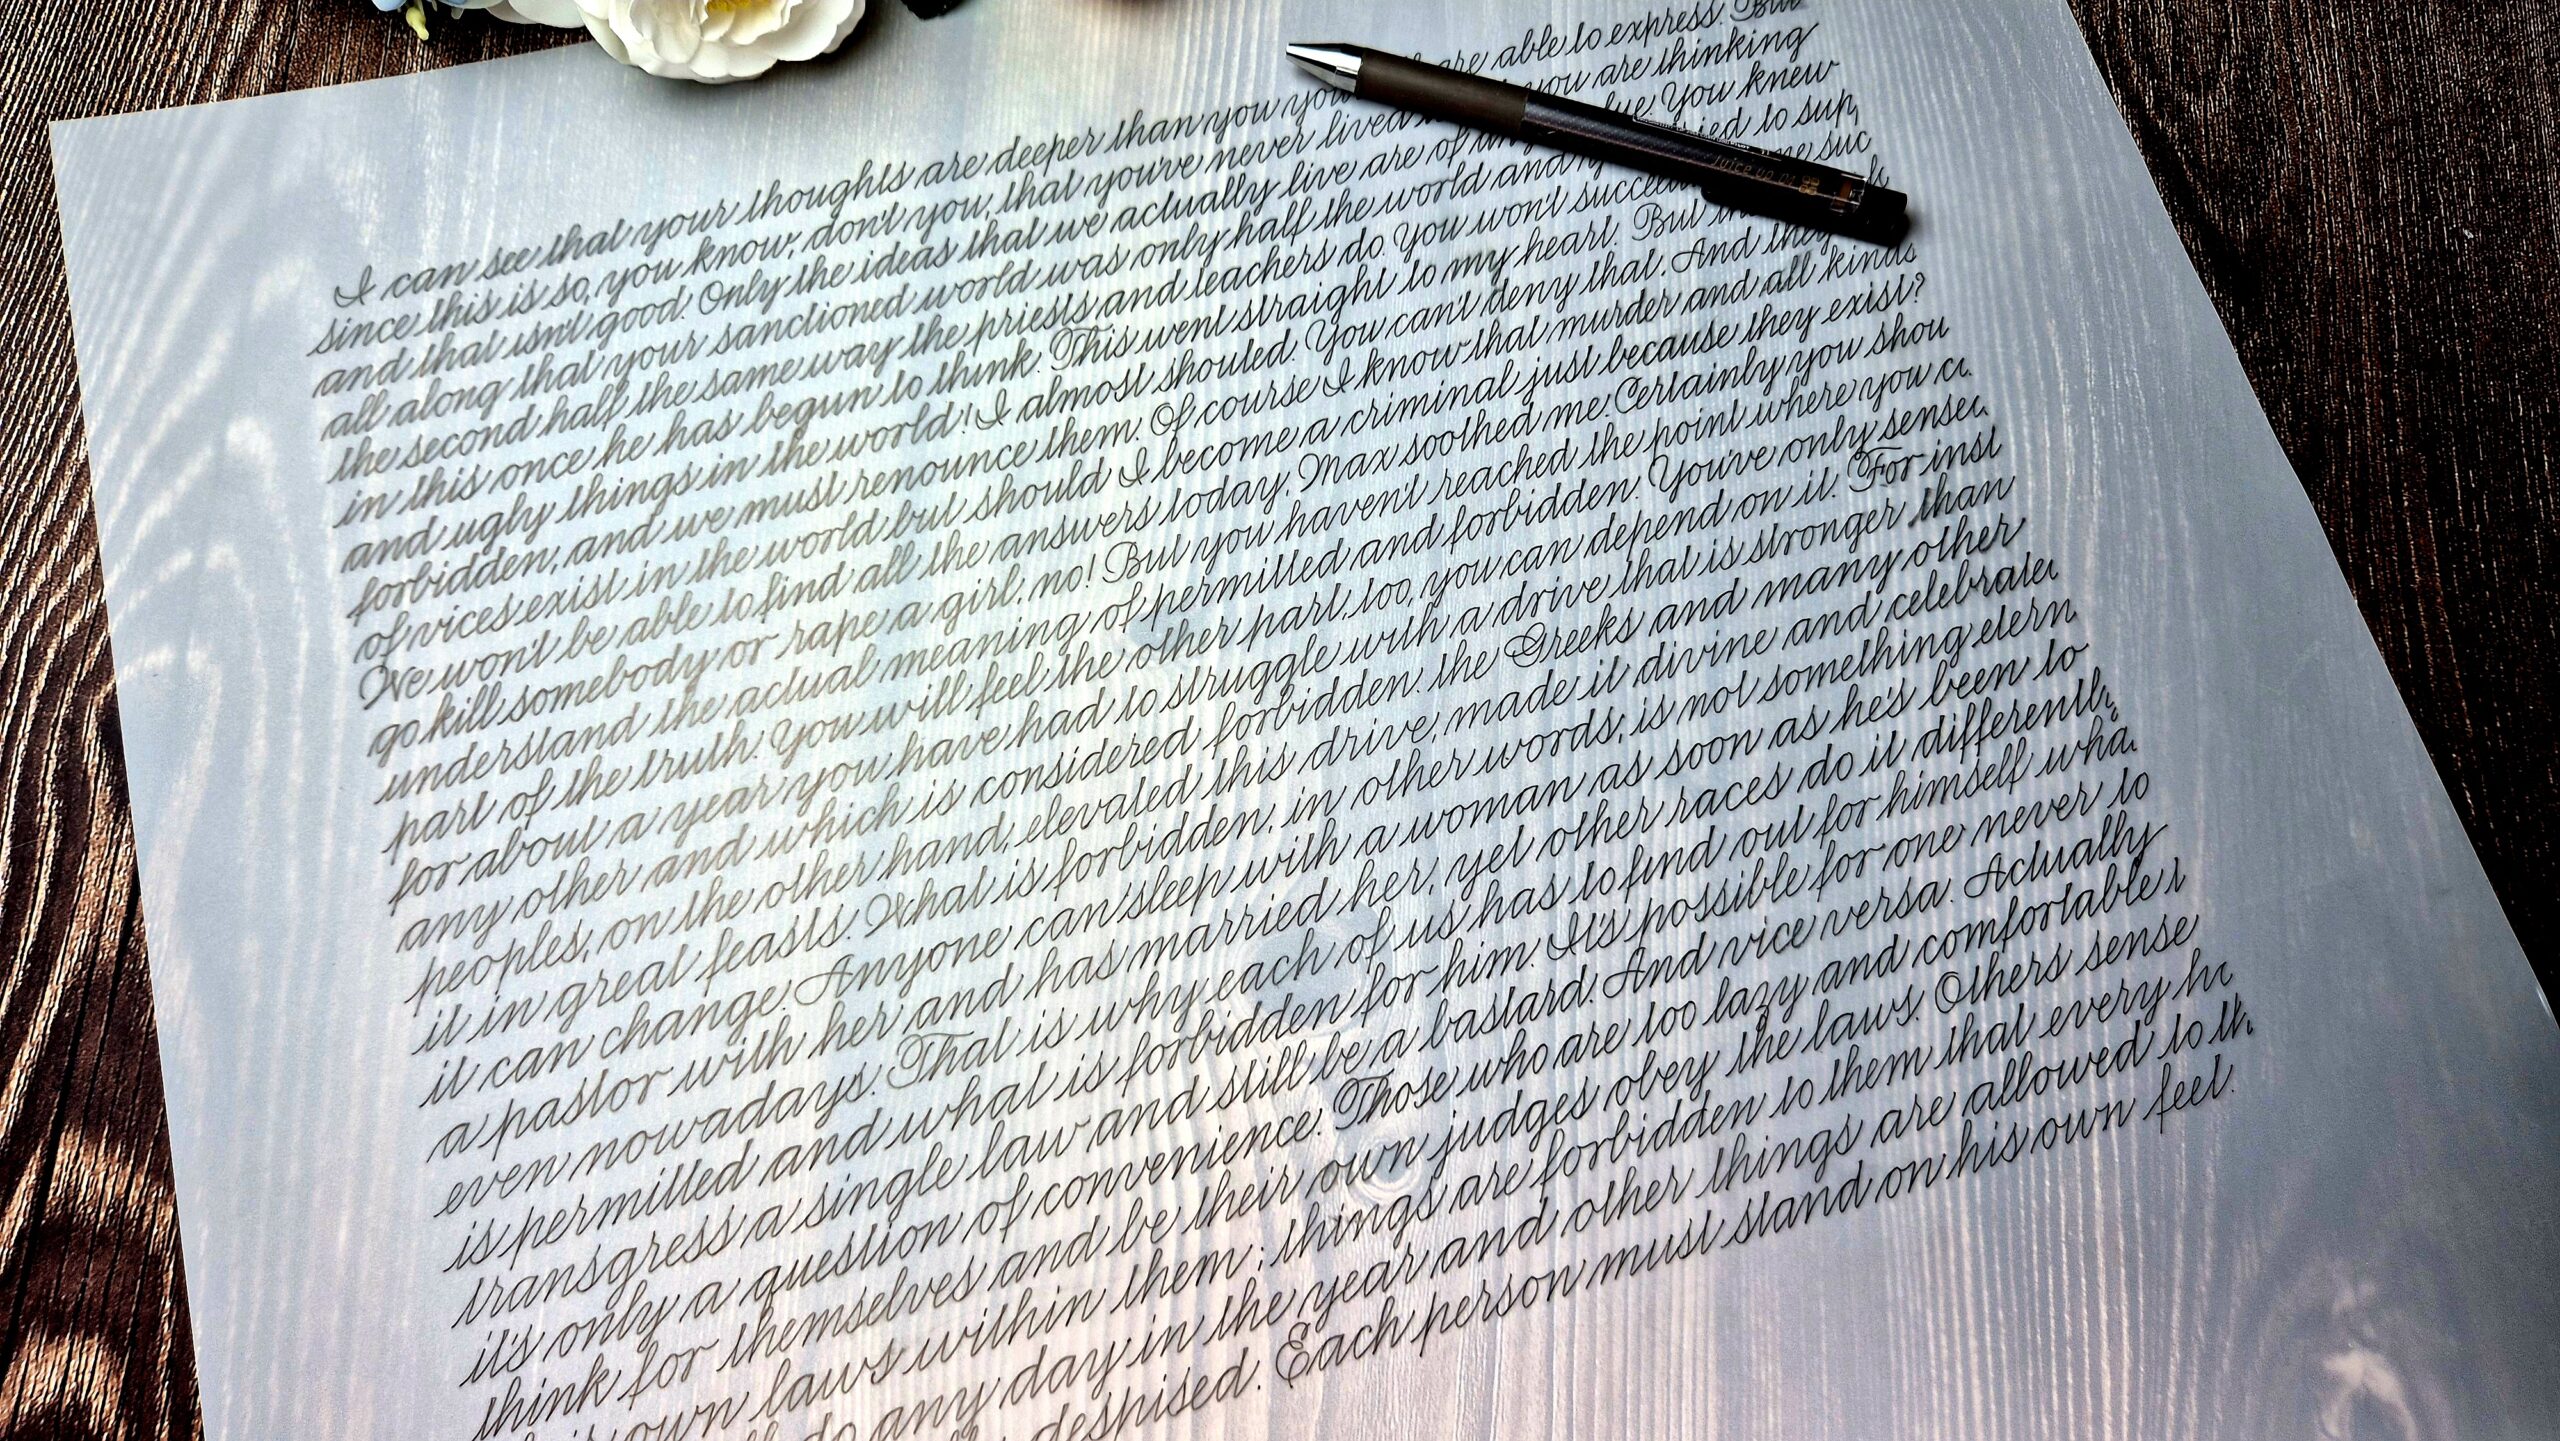 I can see that your thoughts are deeper than you you are able to express. But
since this is so, you know, don't you, that you've never lived you are thinking
and that isn't good. Only the ideas that we actually live are of any You knew
all along that your sanctioned world was only half the world and to sup
the second half the same way the priests and teachers do. You won't succeed suc
in this once he has begun to think. This went straight to my heart. But
and ugly things in the world! I almost shouted. You can't deny that. And they
forbidden, and we must renounce them. Of course I know that murder and all kinds
of vices exist in the world but should I become a criminal just because they exist?
We won't be able to find all the answers today, Max soothed me. Certainly you shou
go kill somebody or rape a girl, no! But you haven't reached the point where you
understand the actual meaning of permitted and forbidden. You've only sensed
part of the truth. You will feel the other part, too, you can depend on it. For inst
for about a year you have had to struggle with a drive that is stronger than
any other and which is considered forbidden. the Greeks and many other
peoples, on the other hand, elevated this drive, made it divine and celebrated
it in great feasts. What is forbidden, in other words, is not something etern
it can change. Anyone can sleep with a woman as soon as he's been to
a pastor with her and has married her, yet other races do it differently,
even nowadays. That is why each of us has to find out for himself wha
is permitted and what is forbidden for him. It's possible for one never to
transgress a single law and still be a bastard. And vice versa. Actually
it's only a question of convenience. Those who are too lazy and comfortable t
think for themselves and be their own judges obey the laws. Others sense
own laws within them; things are forbidden to them that every
do any day in the year and other things are allowed to
despised. Each person must stand on his own feet.